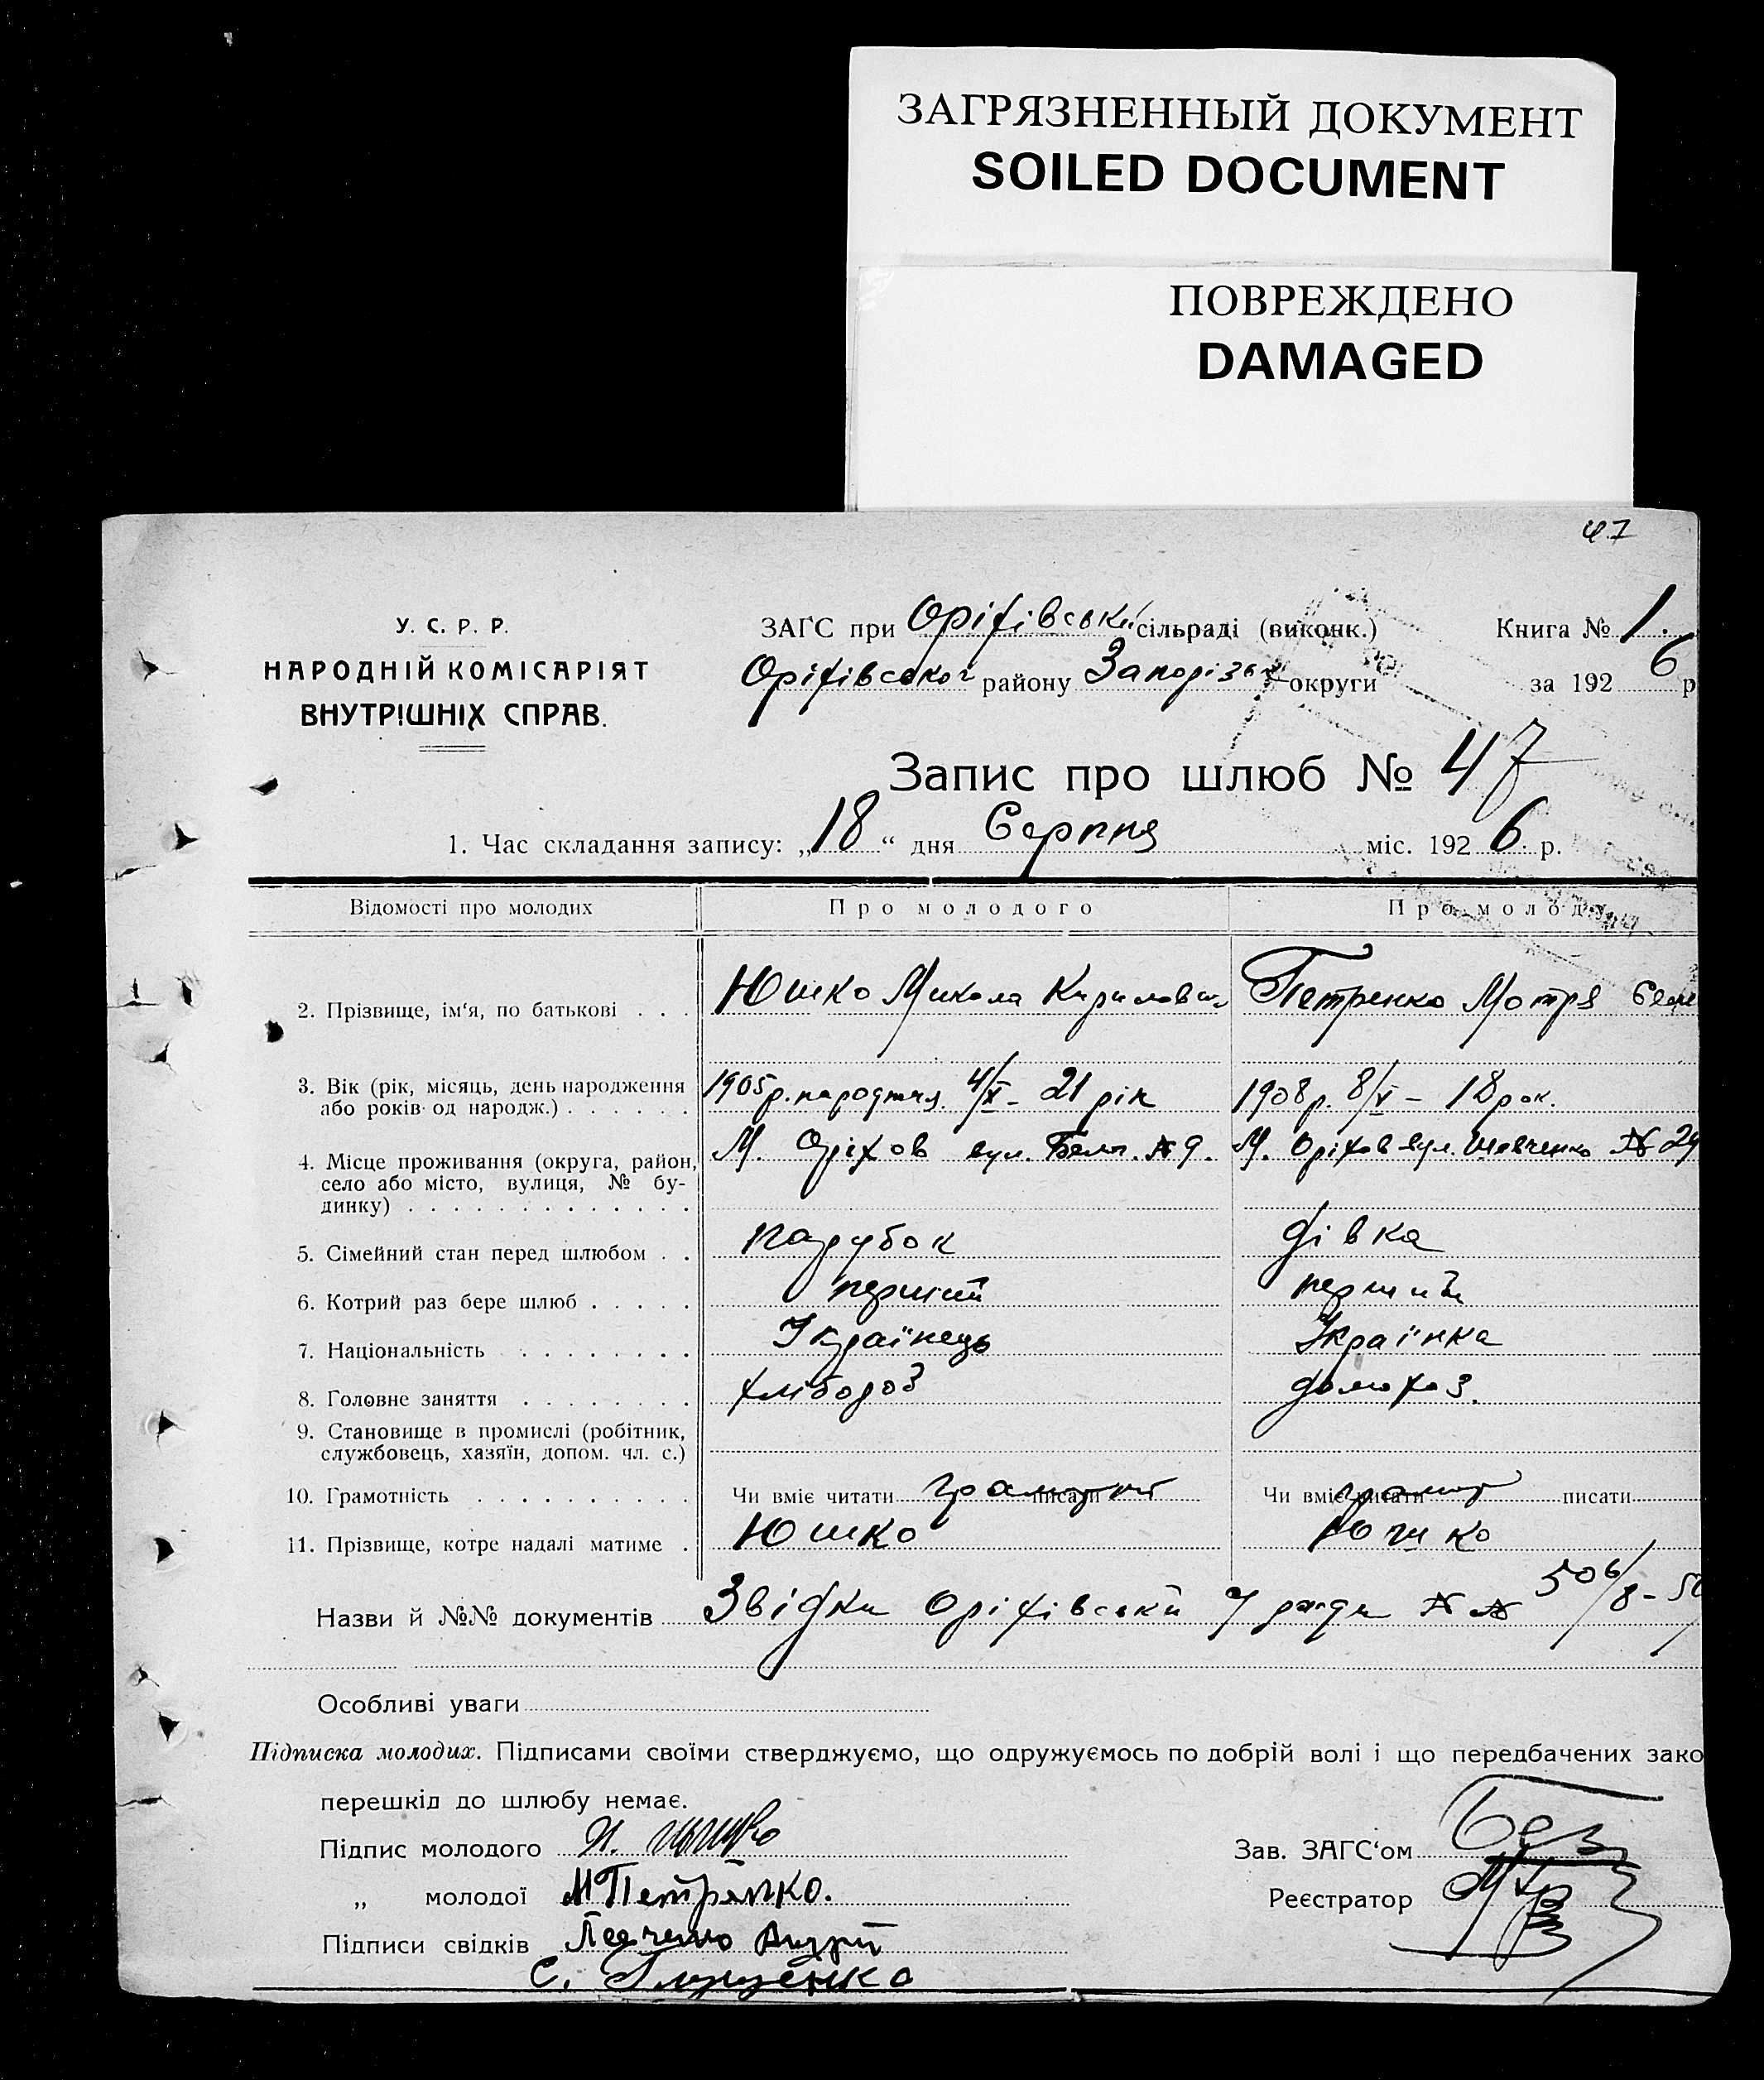 ЗАГРЯЗНЕННЫЙ ДОКУМЕНТ
SOILED DOCUMENT
ПОВРЕЖДЕНО
DAMAGED
47
У. С. Р. Р.
НАРОДНІЙ КОМІСАРІЯТ
ВНУТРІШНІХ СПРАВ.
ЗАГС при Оріхівській сільраді (виконк.)
Оріхівськог району Запорізьк округи
Книга № 1.
за 192 6 р
Запис про шлюб № 47
1. Час складання запису: „18“ дня Серпня міс. 192 6 р.
Відомості про молодих Про молодого Про молоду
2. Прізвище, ім‘я, по батькові . . . Юшко Микола Кирилович Петренко Мотря
3. Вік (рік, місяць, день народження 1905 р. народжня 4/X - 21 рік 1908 р. 8/V - 18 рок.
або років од народж.) . . . . . .
4. Місце проживання (округа, район, М. Оріхов вул. № 9. М. Оріхов вул. Шевченко № 29
село або місто, вулиця, № бу-
динку) . . . . . . . . . . . . .
5. Сімейний стан перед шлюбом . . парубок дівка
6. Котрий раз бере шлюб . . . . . перший перший
7. Національність . . . . . . . . Українець Українка
8. Головне заняття . . . . . . . . хлібороб домохоз.
9. Становище в промислі (робітник,
службовець, хазяїн, допом. чл. с.)
10. Грамотність . . . . . . . . . . Чи вміє читати грамотний писати Чи вміє читати грамот писати
11. Прізвище, котре надалі матиме . Юшко Юшко
Назви й №№ документів Звідки Оріхівській ради №№ 506/8 - 50
Особливі уваги
Підписка молодих. Підписами своїми стверджуємо, що одружуємось по добрій волі і що передбачених зако
перешкід до шлюбу немає.
Підпис молодого
„ молодої М Петренко.
Підписи свідків
С.
Зав. ЗАГС‘ом
Реєстратор